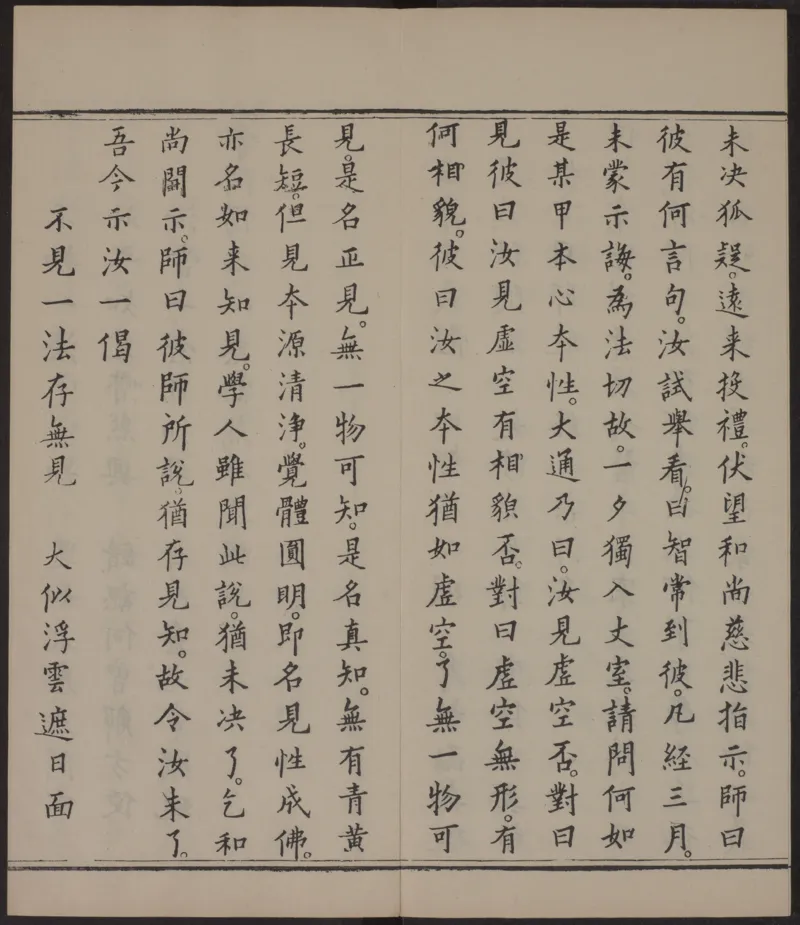 未决狐疑。遠来投禮。伏望和尚慈悲指示。師曰
彼有何言句。汝試舉看。曰智常到彼。凡經三月。
未蒙示誨。為法切故。一夕獨入丈室。請問何如
是某甲本心本性。大通乃曰。汝見虚空否。對曰
見彼曰汝見虚空有相貌否。對曰虚空無形。有
何相貌。彼曰汝之本性猶如虚空。了無一物可
見。是名正見。無一物可知。是名真知。無有青黄
長短。但見本源清浄。覺體圓明。即名見性成佛。
亦名如来知見。學人雖聞此說。猶未决了。乞和
尚開示。師曰彼師所說。猶存見知。故令汝未了。
吾今示汝一偈
不見一法存無見　大似浮雲遮日面